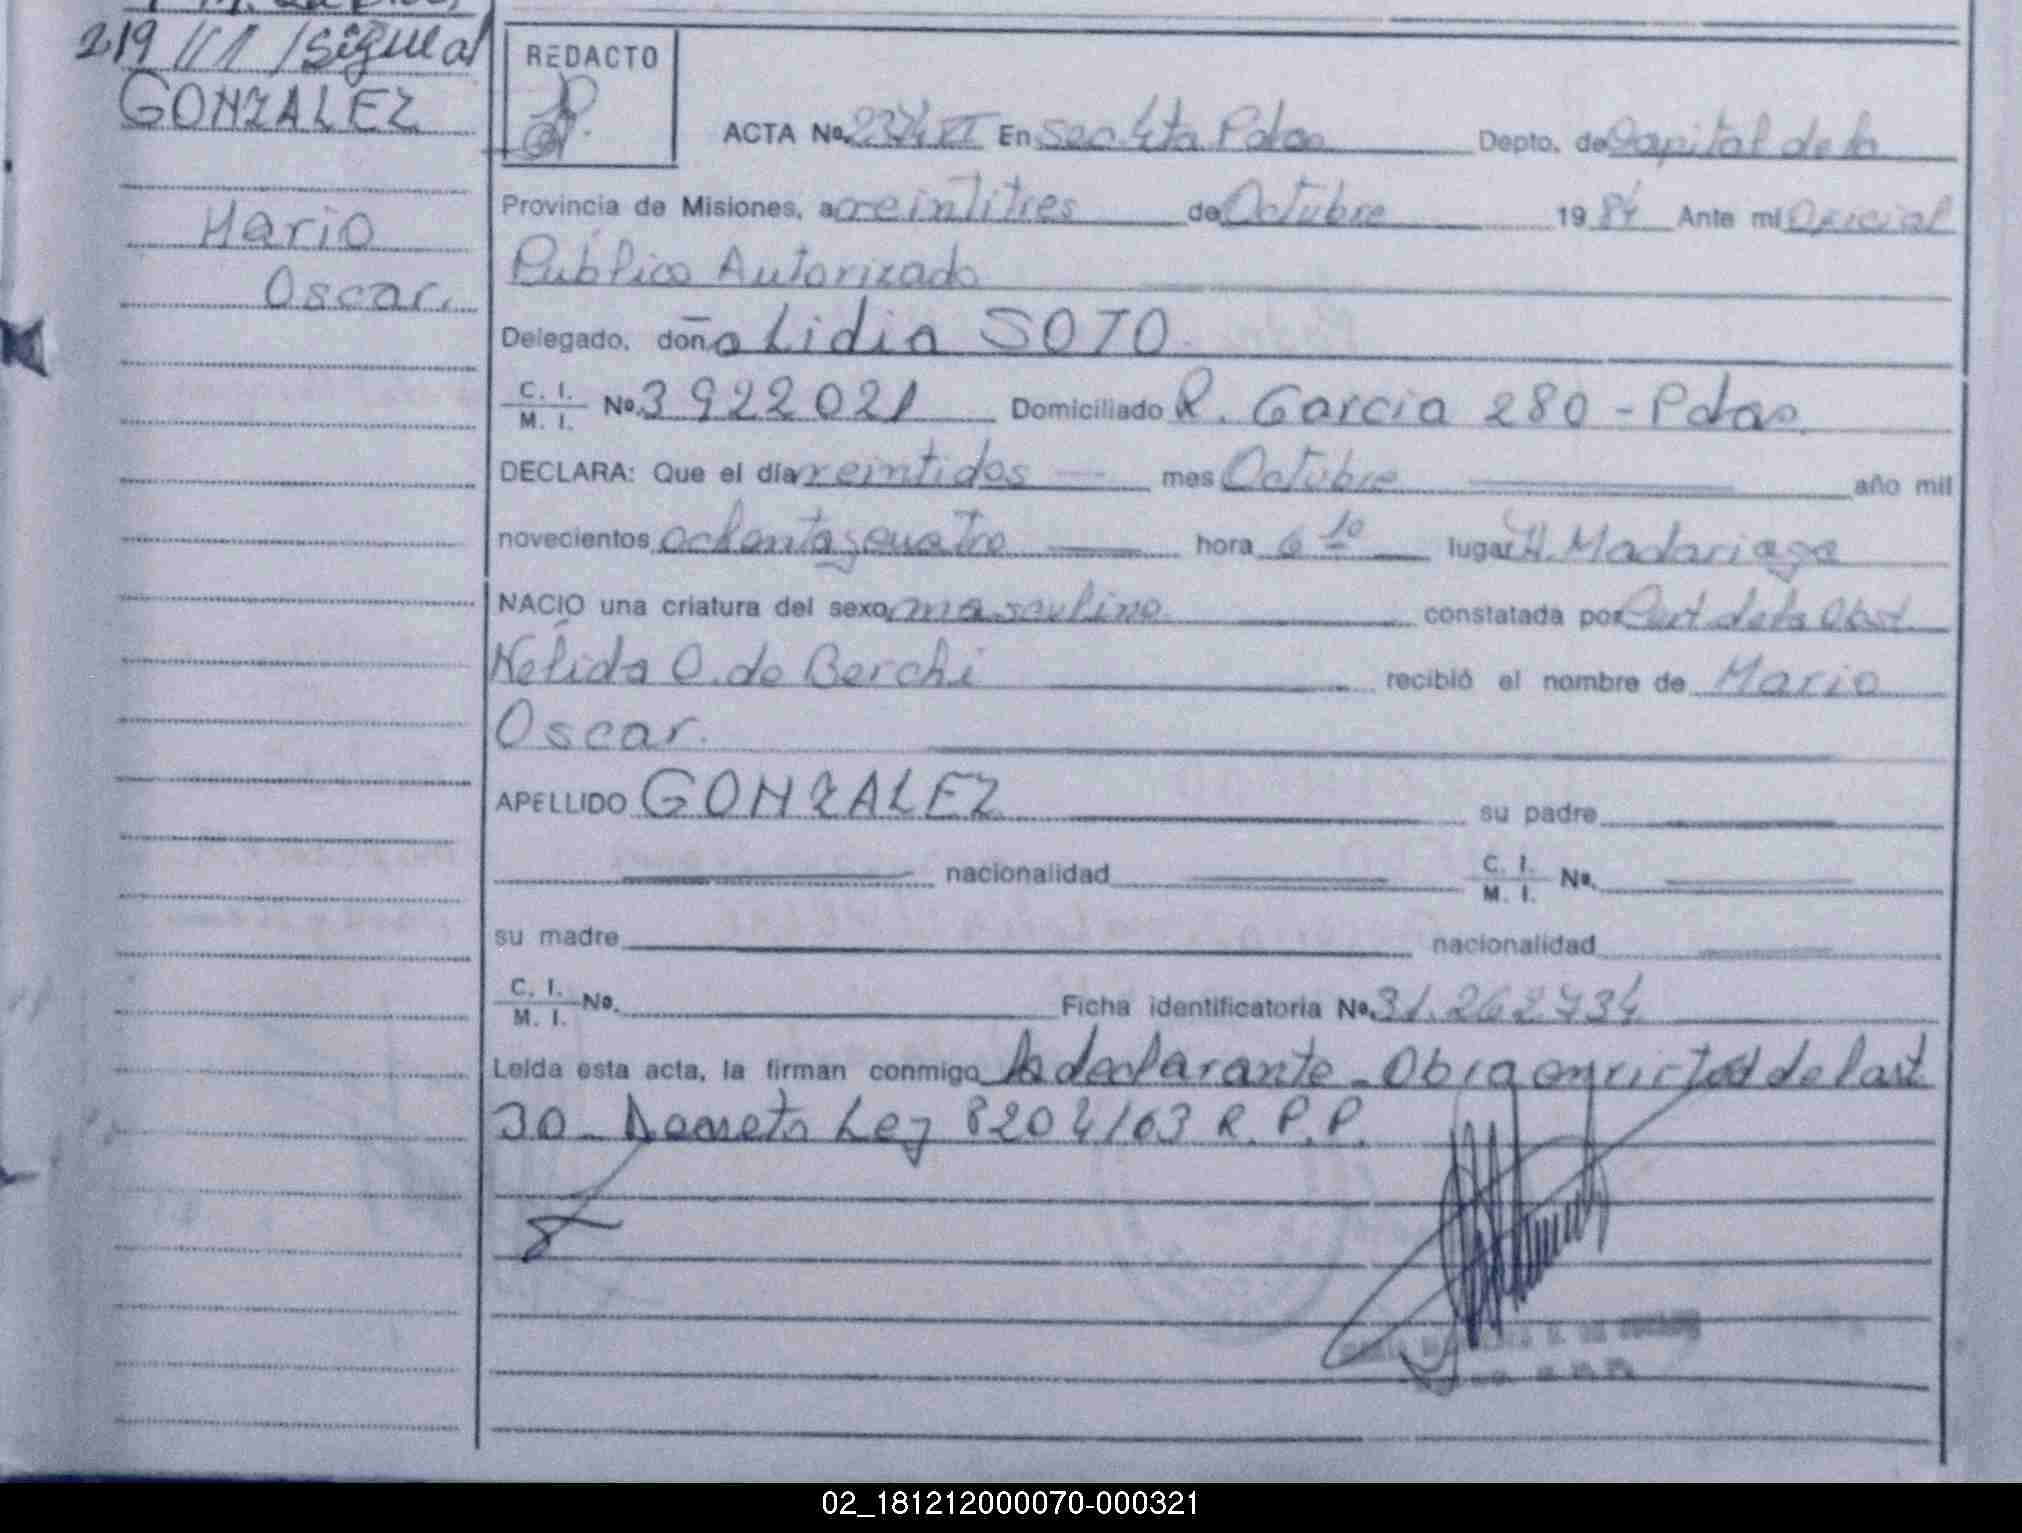 219 /// /Sigue al
GONZALEZ
Mario
Oscar.
REDACTO
ACTA No. 2374 VI En Sec. 4ta Pdas Depto. de Capital de la
Provincia de Misiones, a veintitres de Octubre 19 84 Ante mi Oficial
Público Autorizado
Delegado, doña Lidia SOTO.
C. I. M. I. No. 3922021 Domiciliado R. Garcia 280 - Pdas.
DECLARA: Que el día veintidos mes Octubre año mil
novecientos ochenta y cuatro hora 6 10 lugar H. Madariaga
NACIO una criatura del sexo masculino constatada por Cert. de la Obst.
Nélida O. de Berchi recibió el nombre de Mario
Oscar.
APELLIDO GONZALEZ su padre
nacionalidad C. I. M. I. No.
su madre nacionalidad
C. I. M. I. No. Ficha identificatoria No. 31.262.734
Leída esta acta, la firman conmigo la declarante - Obra en virtud del art
30 - Decreto Ley 8204/63 R. P. P.
02_181212000070-000321